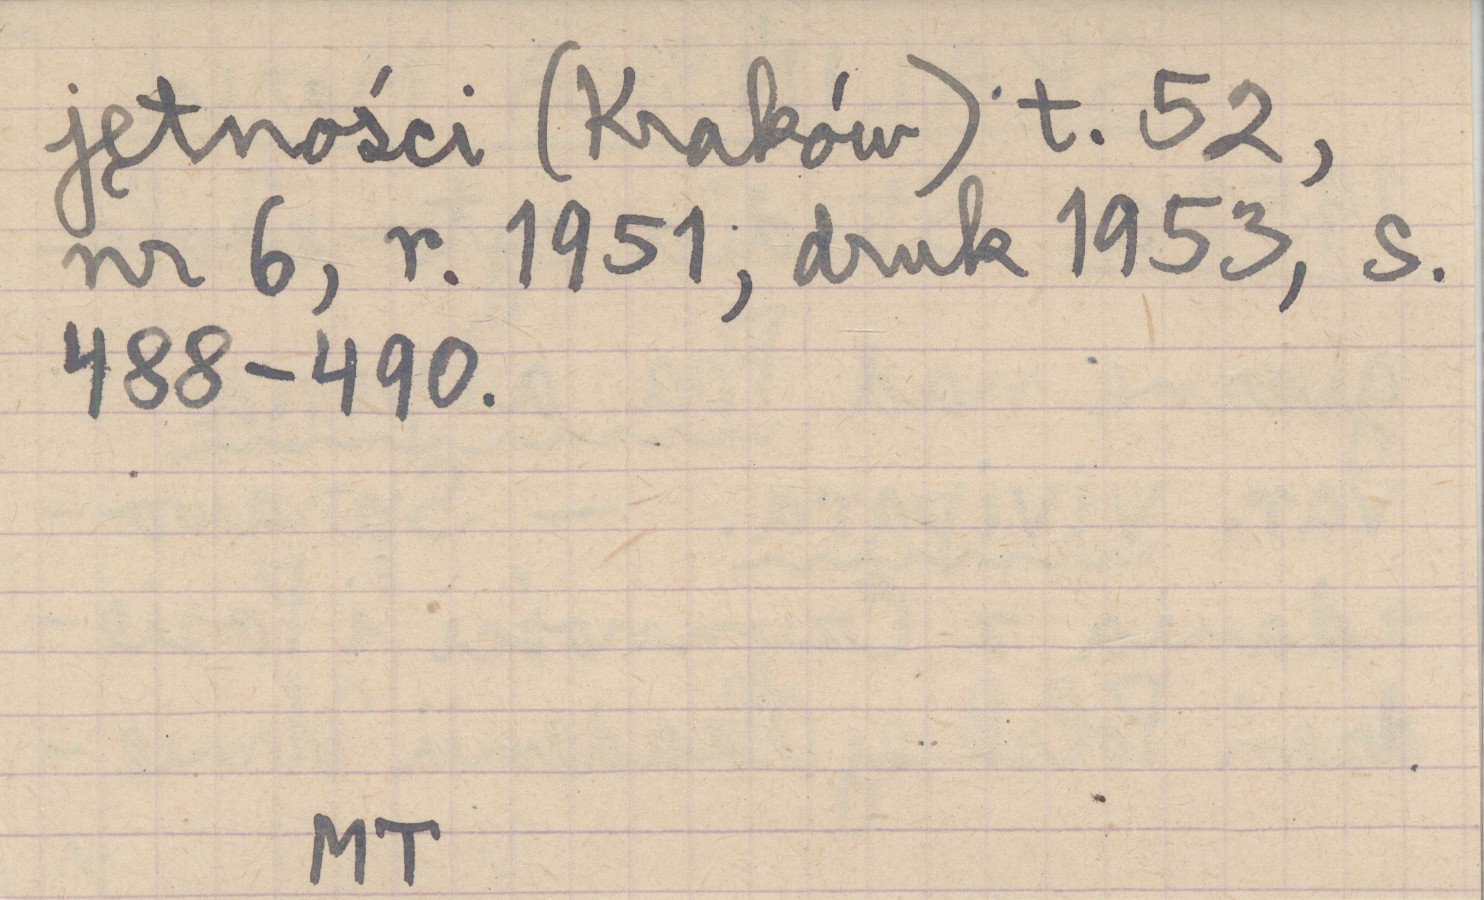 jętności (Kraków) t. 52,
nr 6, r. 1951, druk 1953, s.
488-490.
MT